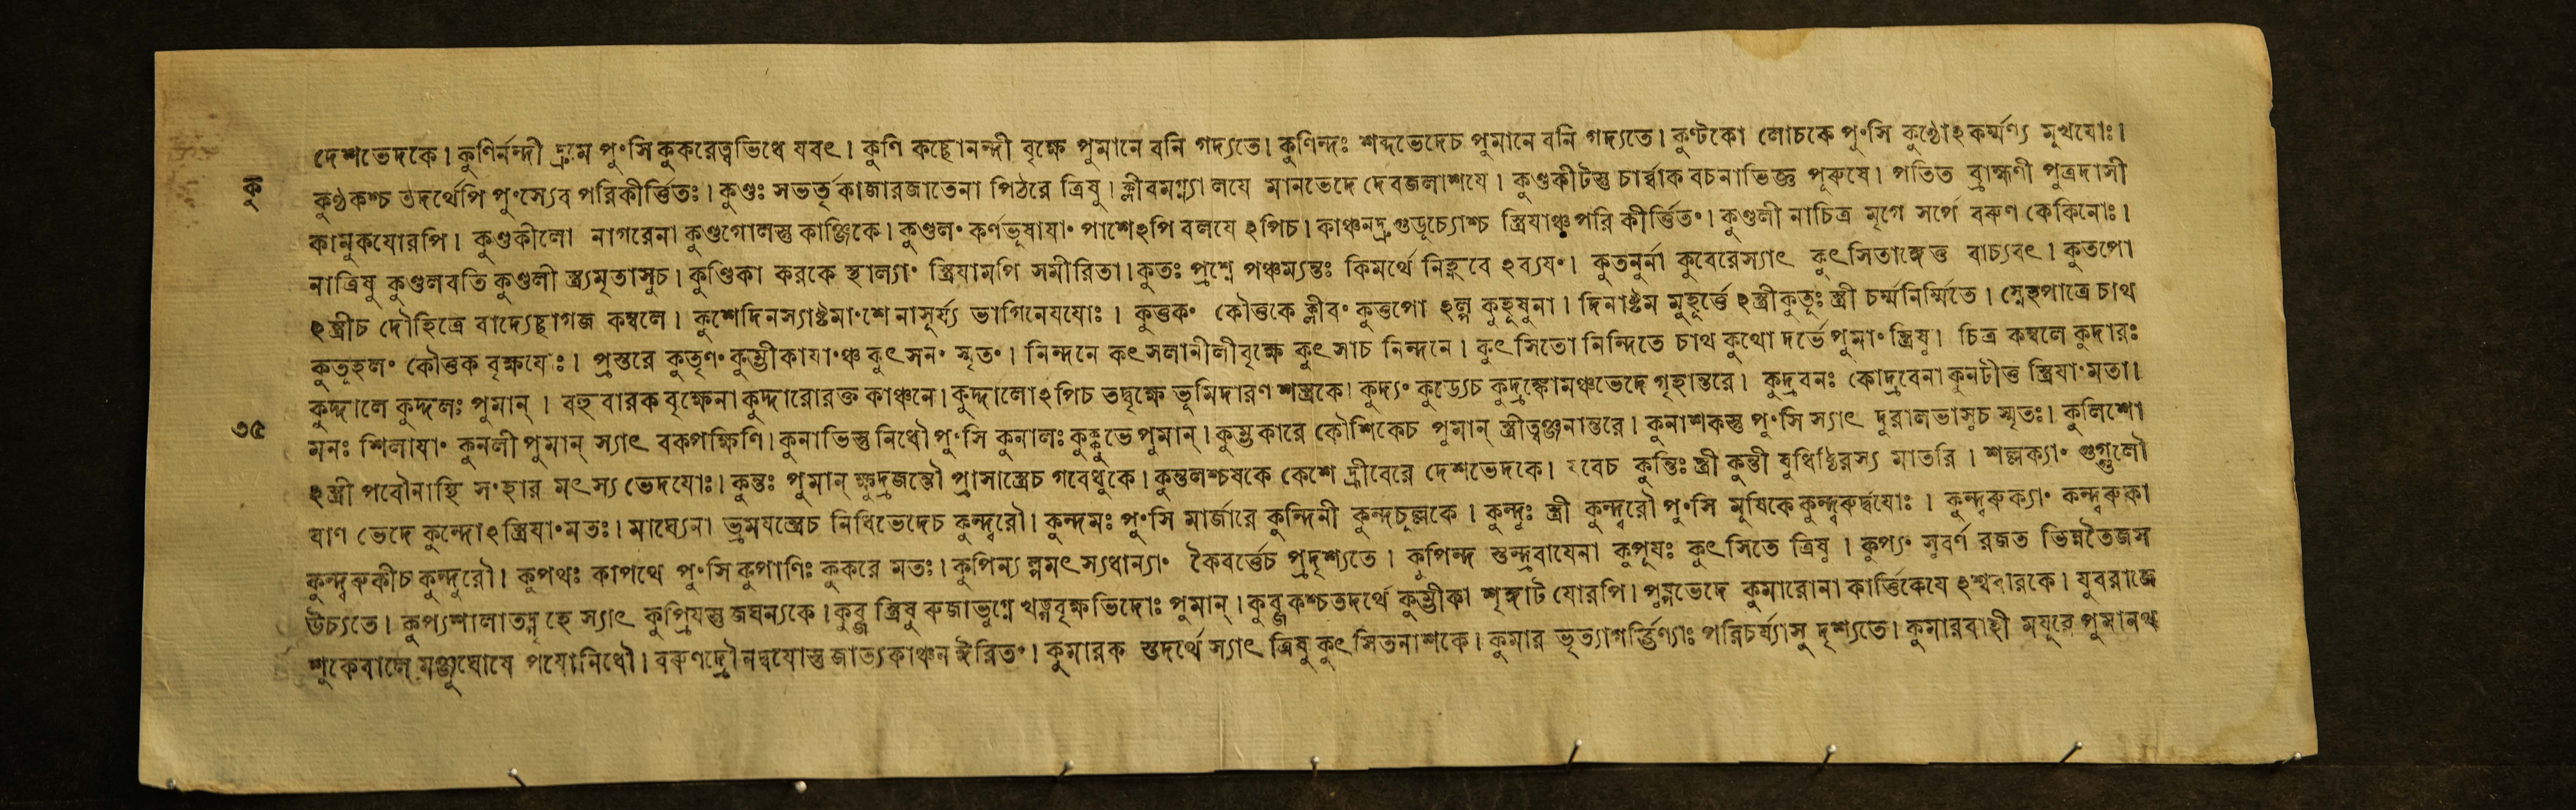 দেশভেদকে। কুণির্নন্দী দ্রুমে পুংসি কুকরেত্বভিধেযবৎ। কুণি কচ্ছোনন্দী বৃক্ষে পুমানে বনি গদ্যতে। কুণিন্দঃ শব্দভেদেচ পুমানে বনি গদ্যতে। কুণ্টকো লোচকে পুংসি কুণ্ঠোঽকর্ম্মণ্য মুখযোঃ।
কু
কুণ্ঠকশ্চ তদর্থেপি পুংস্যেব পরিকীর্ত্তিতঃ। কুণ্ডঃ সভর্ত্তৃকাজারজাতেনা পিঠরে ত্রিষু। ক্লীবমগ্ন্যালযে মানভেদে দেবজলাশযে। কুণ্ডকীটস্তু চার্ব্বাক বচনাভিজ্ঞ পূরুষে। পতিত ব্রাহ্মণী পুত্রদাসী
কামুকযোরপি। কুণ্ডকীলো নাগরেনা কুণ্ডগোলস্তু কাঞ্জিকে। কুণ্ডলং কর্ণভূষাযাং পাশেঽপি বলযে ঽপিচ। কাঞ্চনদ্রুগুডূচ্যোশ্চ স্ত্রিযাঞ্চ পরি কীর্ত্তিতং। কুণ্ডলী নাচিত্র মৃগে সর্পে বরুণ কেকিনোঃ।
নাত্রিষু কুণ্ডলবতি কুণ্ডলী স্ত্র্যমৃতাসুচ। কুণ্ডিকা করকে স্থাল্যাং স্ত্রিযামপি সমীরিতা। কুতঃ প্রশ্নে পঞ্চম্যন্তঃ কিমর্থে নিহ্নবে ঽব্যযং। কুতনুর্না কুবেরেস্যাৎ কুৎসিতাঙ্গেত্ত বাচ্যবৎ। কুতপো
ঽস্ত্রীচ দৌহিত্রে বাদ্যেচ্ছাগজ কম্বলে। কুশেদিনস্যাষ্টমাংশে নাসূর্য্য ভাগিনেযযোঃ। কুত্তকং কৌত্তকে ক্লীবং কুত্তপো ঽল্প কুহূষুনা। দিনাষ্টম মুহূর্ত্তে ঽস্ত্রীকুতূঃ স্ত্রী চর্ম্মনির্ম্মিতে। স্নেহপাত্রে চাথ
কুতূহলং কৌত্তক বৃক্ষযোঃ। প্রস্তরে কুতৃণং কুম্ভীকাযাংঞ্চ কুৎসনং স্মৃতং। নিন্দনে কৎসলানীলীবৃক্ষে কুৎসাচ নিন্দনে। কুৎসিতো নিন্দিতে চাথ কুথো দর্ভে পুমাং স্ত্রিষু। চিত্র কম্বলে কুদারঃ
কুদ্দালে কুদ্দলঃ পুমান্। বহু বারক বৃক্ষেনা কুদ্দারোরক্ত কাঞ্চনে। কুদ্দালোঽপিচ তদ্বৃক্ষে ভূমিদারণ শস্ত্রকে। কুদ্যং কুড্যেচ কুদ্রুঙ্কোমঞ্চভেদে গৃহান্তরে। কুদ্রবনঃ কোদ্রবেনা কুনটীত্ত স্ত্রিযাং মতা।
৩৫
মনঃ শিলাযাং কুনলী পুমান্ স্যাৎ বকপক্ষিণি। কুনাভিস্তু নিধৌ পুংসি কুনালঃ কুক্কুভে পুমান্। কুম্ভকারে কৌশিকেচ পুমান্ স্ত্রীত্বঞ্জনান্তরে। কুনাশকস্তু পুংসি স্যাৎ দুরালভাসুচ স্মৃতঃ। কুলিশো
ঽস্ত্রী পবৌনাস্থি সংহার মৎস্য ভেদযোঃ। কুন্তঃ পুমান্ ক্ষুদ্রজন্তৌ প্রাসাস্ত্রেচ গবেধুকে। কুন্তলশ্চষকে কেশে হ্রীবেরে দেশভেদকে। যবেচ কুন্তিঃ স্ত্রী কুন্তী যুধিষ্ঠিরস্য মাতরি। শল্লক্যাং গুগ্গুলৌ
যাণ ভেদে কুন্দোঽস্ত্রিযাংমতঃ। মাঘ্যেনা ভ্রমযন্ত্রেচ নিধিভেদেচ কুন্দুরৌ। কুন্দমঃ পুংসি মার্জারে কুন্দিনী কুন্দচুল্লকে। কুন্দূঃ স্ত্রী কুন্দুরৌ পুংসি মুষিকে কুন্দুরুর্দ্বযোঃ। কুন্দুরুক্যাং কন্দুরুকা
কুন্দুরুকীচ কুন্দুরৌ। কুপথঃ কাপথে পুংসি কুপাণিঃ কুকরে মতঃ। কুপিন্য ল্পমৎস্যধান্যাং কৈবর্ত্তেচ প্রদৃশ্যতে। কুপিন্দ স্তন্ত্রবাযেনা কুপূযঃ কুৎসিতে ত্রিষু। কুপ্যং সুবর্ণ রজত ভিন্নতৈজস
উচ্যতে। কুপ্যশালাতদ্গৃহে স্যাৎ কুপ্রিযস্তু জঘন্যকে। কুব্জ স্ত্রিষু রুজাভুগ্নে খড়্গবৃক্ষভিদোঃ পুমান্। কুব্জকশ্চতদর্থে কুম্ভীকা শৃঙ্গাট যোরপি। পুষ্পভেদে কুমারোনা কার্ত্তিকেযে ঽশ্ববারকে। যুবরাজে
শুকেবালে মঞ্জুঘোষে পযোনিধৌ। বরুণদ্রৌনদ্বযোস্তু জাত্যকাঞ্চন ঈরিতং। কুমারক স্তদর্থে স্যাৎ ত্রিষু কুৎসিতনাশকে। কুমার ভৃত্যাগর্ব্ভিণ্যাঃ পরিচর্য্যাসু দৃশ্যতে। কুমারবাহী মযূরে পুমানথ